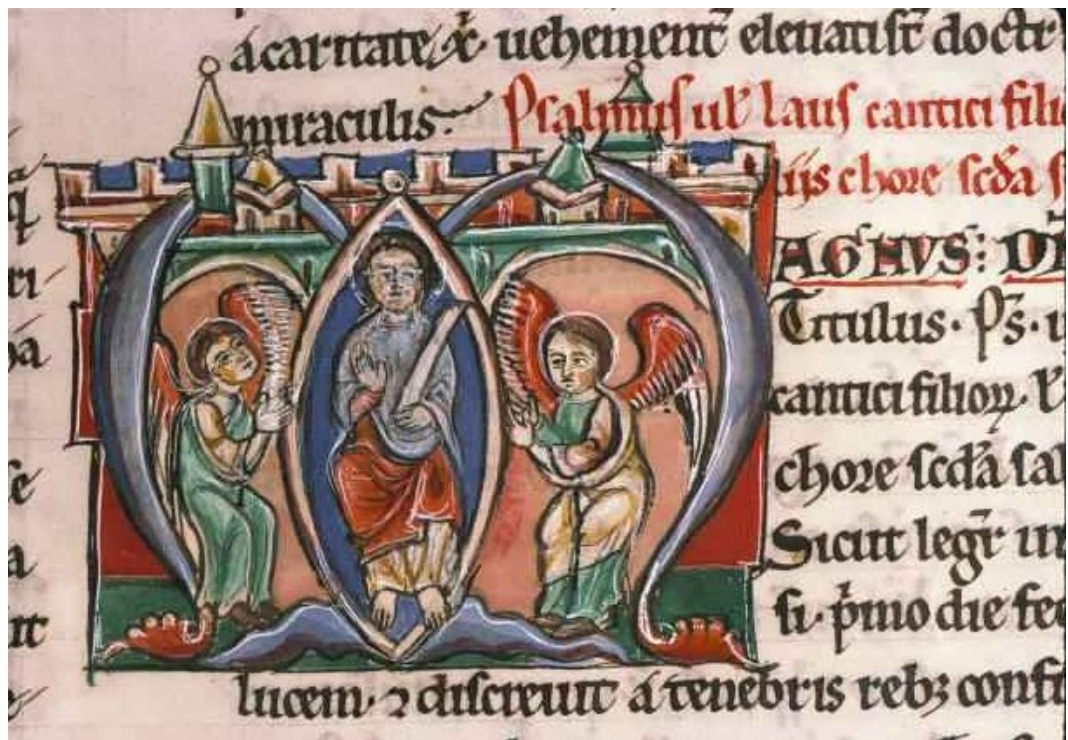 a caritate, et uehement̄ eleuatisr̄ doctr
miraculis. Psalmus ul̄ laus cantici filio
iis chore scd̄a s
AGNVS: DN̄
Titulus. Ps̄. u
cantici filioꝝ
chore scd̄a sab
Sicut legr̄ in
si. p̄mo die fec
lucem. ⁊ discreuit a tenebris rebꝫ confu